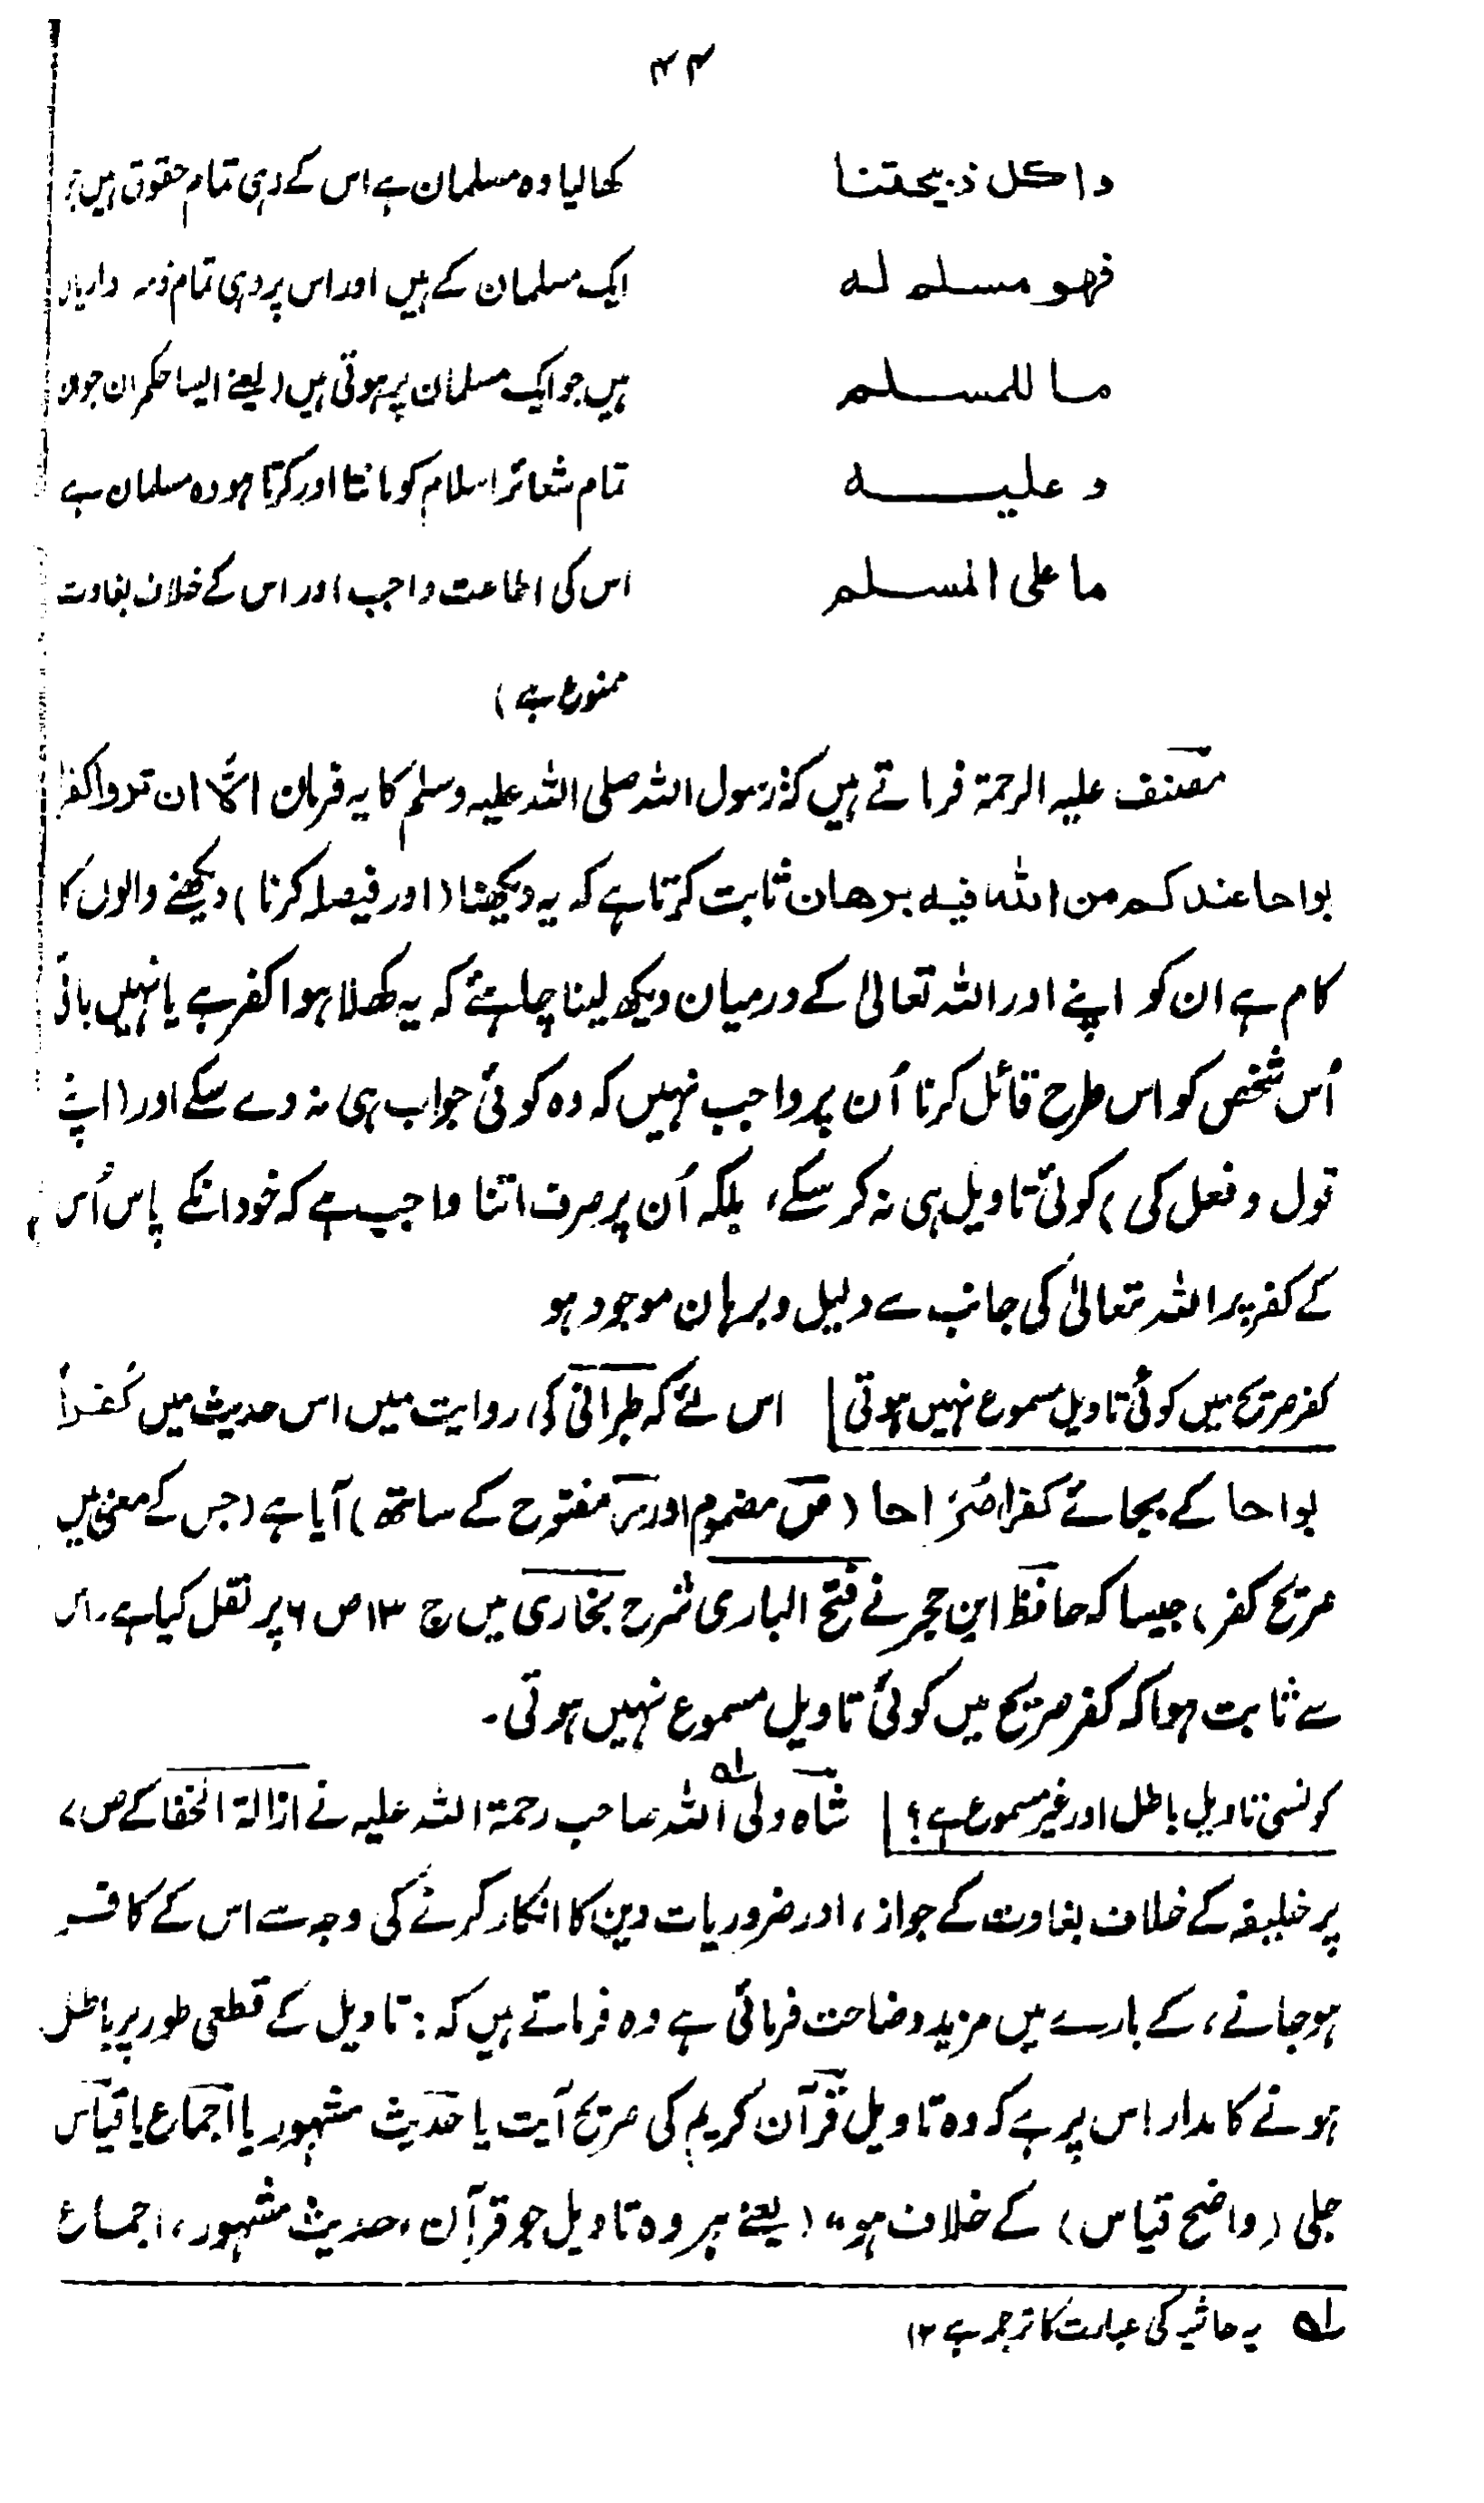 ۴۴
واكل ذبيحتنا کھالیا وہ مسلمان ہے اس کے وہی تمام حقوق ہیں جو
فهو مسلم له ایک مسلمان کے ہیں اور اس پر وہی تمام ذمہ داریاں
ما للمسلم ہیں جو ایک مسلمان پر ہوتی ہیں (یعنے ایسا حکمران جو ان
وعليه تمام شعائر اسلام کو مانتا اور کرتا ہو وہ مسلمان ہے
ما على المسلم اس کی اطاعت واجب اور اس کے خلاف بغاوت
ممنوع ہے)
مصنف علیہ الرحمۃ فرماتے ہیں کہ رسول اللہ صلی اللہ علیہ وسلم کا یہ فرمان الّا ان تروا كفرا
بواحا عندكم من الله فيه برهان ثابت کرتا ہے کہ یہ دیکھنا (اور فیصلہ کرنا) دیکھنے والوں کا
کام ہے ان کو اپنے اور اللہ تعالیٰ کے درمیان دیکھ لینا چاہئے کہ یہ کھلا ہوا کفر ہے یا نہیں باقی
اُس شخص کو اس طرح قائل کرنا اُن پر واجب نہیں کہ وہ کوئی جواب ہی نہ دے سکے اور (اپنے
قول و فعل کی) کوئی تاویل ہی نہ کر سکے، بلکہ اُن پر صرف اتنا واجب ہے کہ خود انکے پاس اُس
کے کفر پر اللہ تعالیٰ کی جانب سے دلیل و برہان موجود ہو
کفر صریح میں کوئی تاویل مسموع نہیں ہوتی اس لئے کہ طبرانی کی روایت میں اس حدیث میں كفراً
بواحا کے بجائے کفرا صُرَاحا (ص مضموم اور ر مفتوح کے ساتھ) آیا ہے (جس کے معنیٰ ہیں
صریح کفر) جیسا کہ حافظ ابن حجر نے فتح الباری شرح بخاری میں ج ۱۳ ص ۶ پر نقل کیا ہے۔ اس
سے ثابت ہوا کہ کفر صریح میں کوئی تاویل مسموع نہیں ہوتی۔
کونسی تاویل باطل اور غیر مسموع ہے؟ شاہ ولی اللہ صاحب رحمۃ اللہ علیہ نے ازالۃ الخفا کے ص ۷
پر خلیفہ کے خلاف بغاوت کے جواز، اور ضروریات دین کا انکار کرنے کی وجہ سے اس کے کافر
ہو جانے، کے بارے میں مزید وضاحت فرمائی ہے وہ فرماتے ہیں کہ: تاویل کے قطعی طور پر باطل
ہونے کا مدار اس پر ہے کہ وہ تاویل قرآن کریم کی صریح آیت یا حدیث مشہور یا اجماع یا قیاس
جلی (واضح قیاس) کے خلاف ہو" (یعنے ہر وہ تاویل جو قرآن، حدیث مشہور، اجماع
لہ یہ حاشیہ کی عبارت کا ترجمہ ہے ۱۲